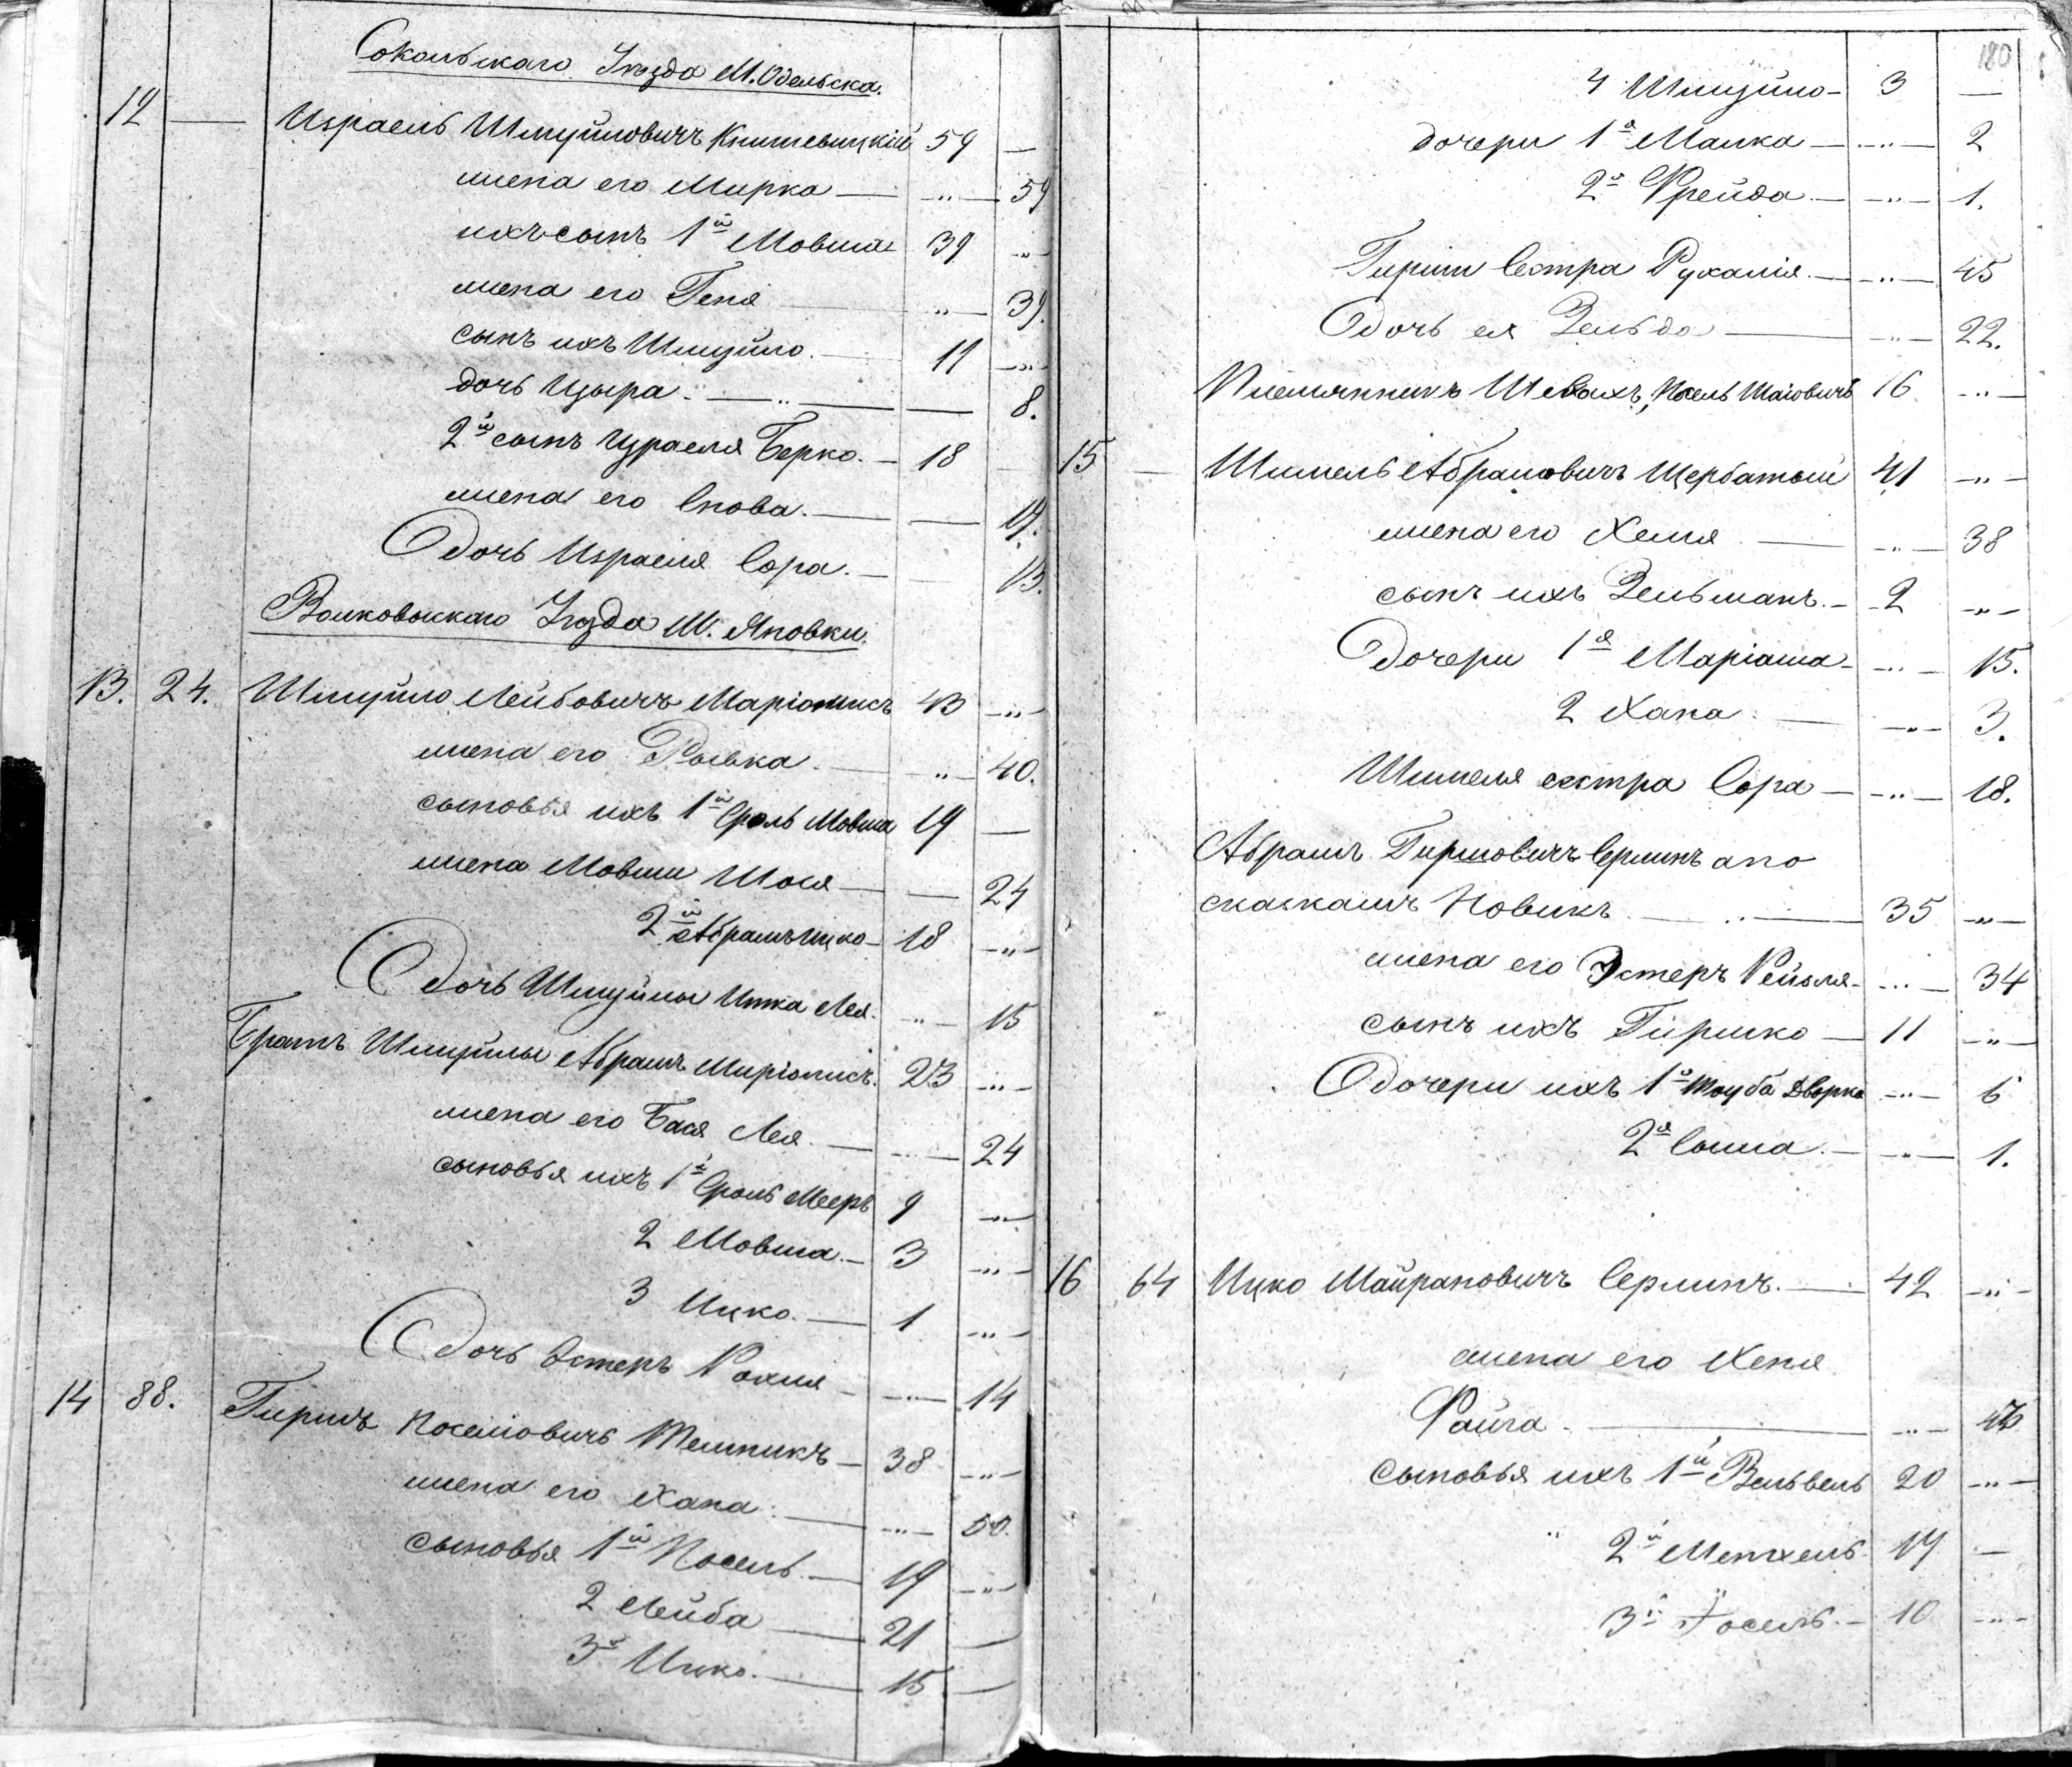 Сокольскаго Уѣзда М. Одельска.
12 — Израель Шмуйловичъ Книшевицкій 59 —
жена его Мирка — " — 59
ихъ сынъ 1й Мовша 39 "
жена его Геня " — 39.
сынъ ихъ Шмуйло. 11 "
дочь Цыра. — " — 8.
2й сынъ Израеля Берко. — 18
жена его Снова. — — 19.
Дочь Израеля Сора. — 13.
Волковыскаго Уѣзда М. Яновки.
13. 24. Шмуйло Лейбовичъ Маріомисъ 43 "
жена его Рывка. — " — 40.
сыновья ихъ 1й Сроль Мовша 19 —
жена Мовши Шося — — 24
2й Абрамъ Ицко — 18 "
Дочь Шмуйлы Итка Лея. " — 15
Братъ Шмуйлы Абрамъ Миріомисъ. 23 "
жена его Бася Лея. — " — 24
сыновья ихъ 1й Сроль Мееръ 9 "
2 Мовша. — 3 "
3 Ицко. — 1 "
Дочь Эстеръ Рохля — " — 14
14 88. Гиршъ Іосельовичъ Мельникъ — 38 "
жена его Хана. — " — 50.
сыновья 1й Іосель. — 19 "
2 Лейба — 21 —
3й Ицко. — 15 —
180
4 Шмуйло — 3 —
дочери 1я Малка — " — 2
2я Фрейда. — " — 1.
Гирши Сестра Рухамія. — " — 45
Дочь ея Зельда — " — 22.
Племянникъ Шевахъ, Іосель Шаіовичъ 16 "
15 — Шимель Абрамовичъ Щербатый 41 "
жена его Хемя — " — 38
сынъ ихъ Зельманъ. — 2 "
Дочери 1я Маріаша — " — 15.
2 Хана. — " — 3.
Шимеля сестра Сора — " — 18.
Абрамъ Гиршовичъ Серлинъ а по
сказкамъ Новикъ — " — 35 "
жена его Эстеръ Рейзля — " — 34
сынъ ихъ Гиршко — 11 "
Дочери ихъ 1я Тауба Дворка " — 6
2я Сошa. — " — 1.
16 64 Ицко Майрановичъ Серлинъ. — 42 "
жена его Хеня
Файга. — " —
сыновья ихъ 1й Вельвель 20 "
" 2й Менхель 19 —
3й Іосель. — 10 "